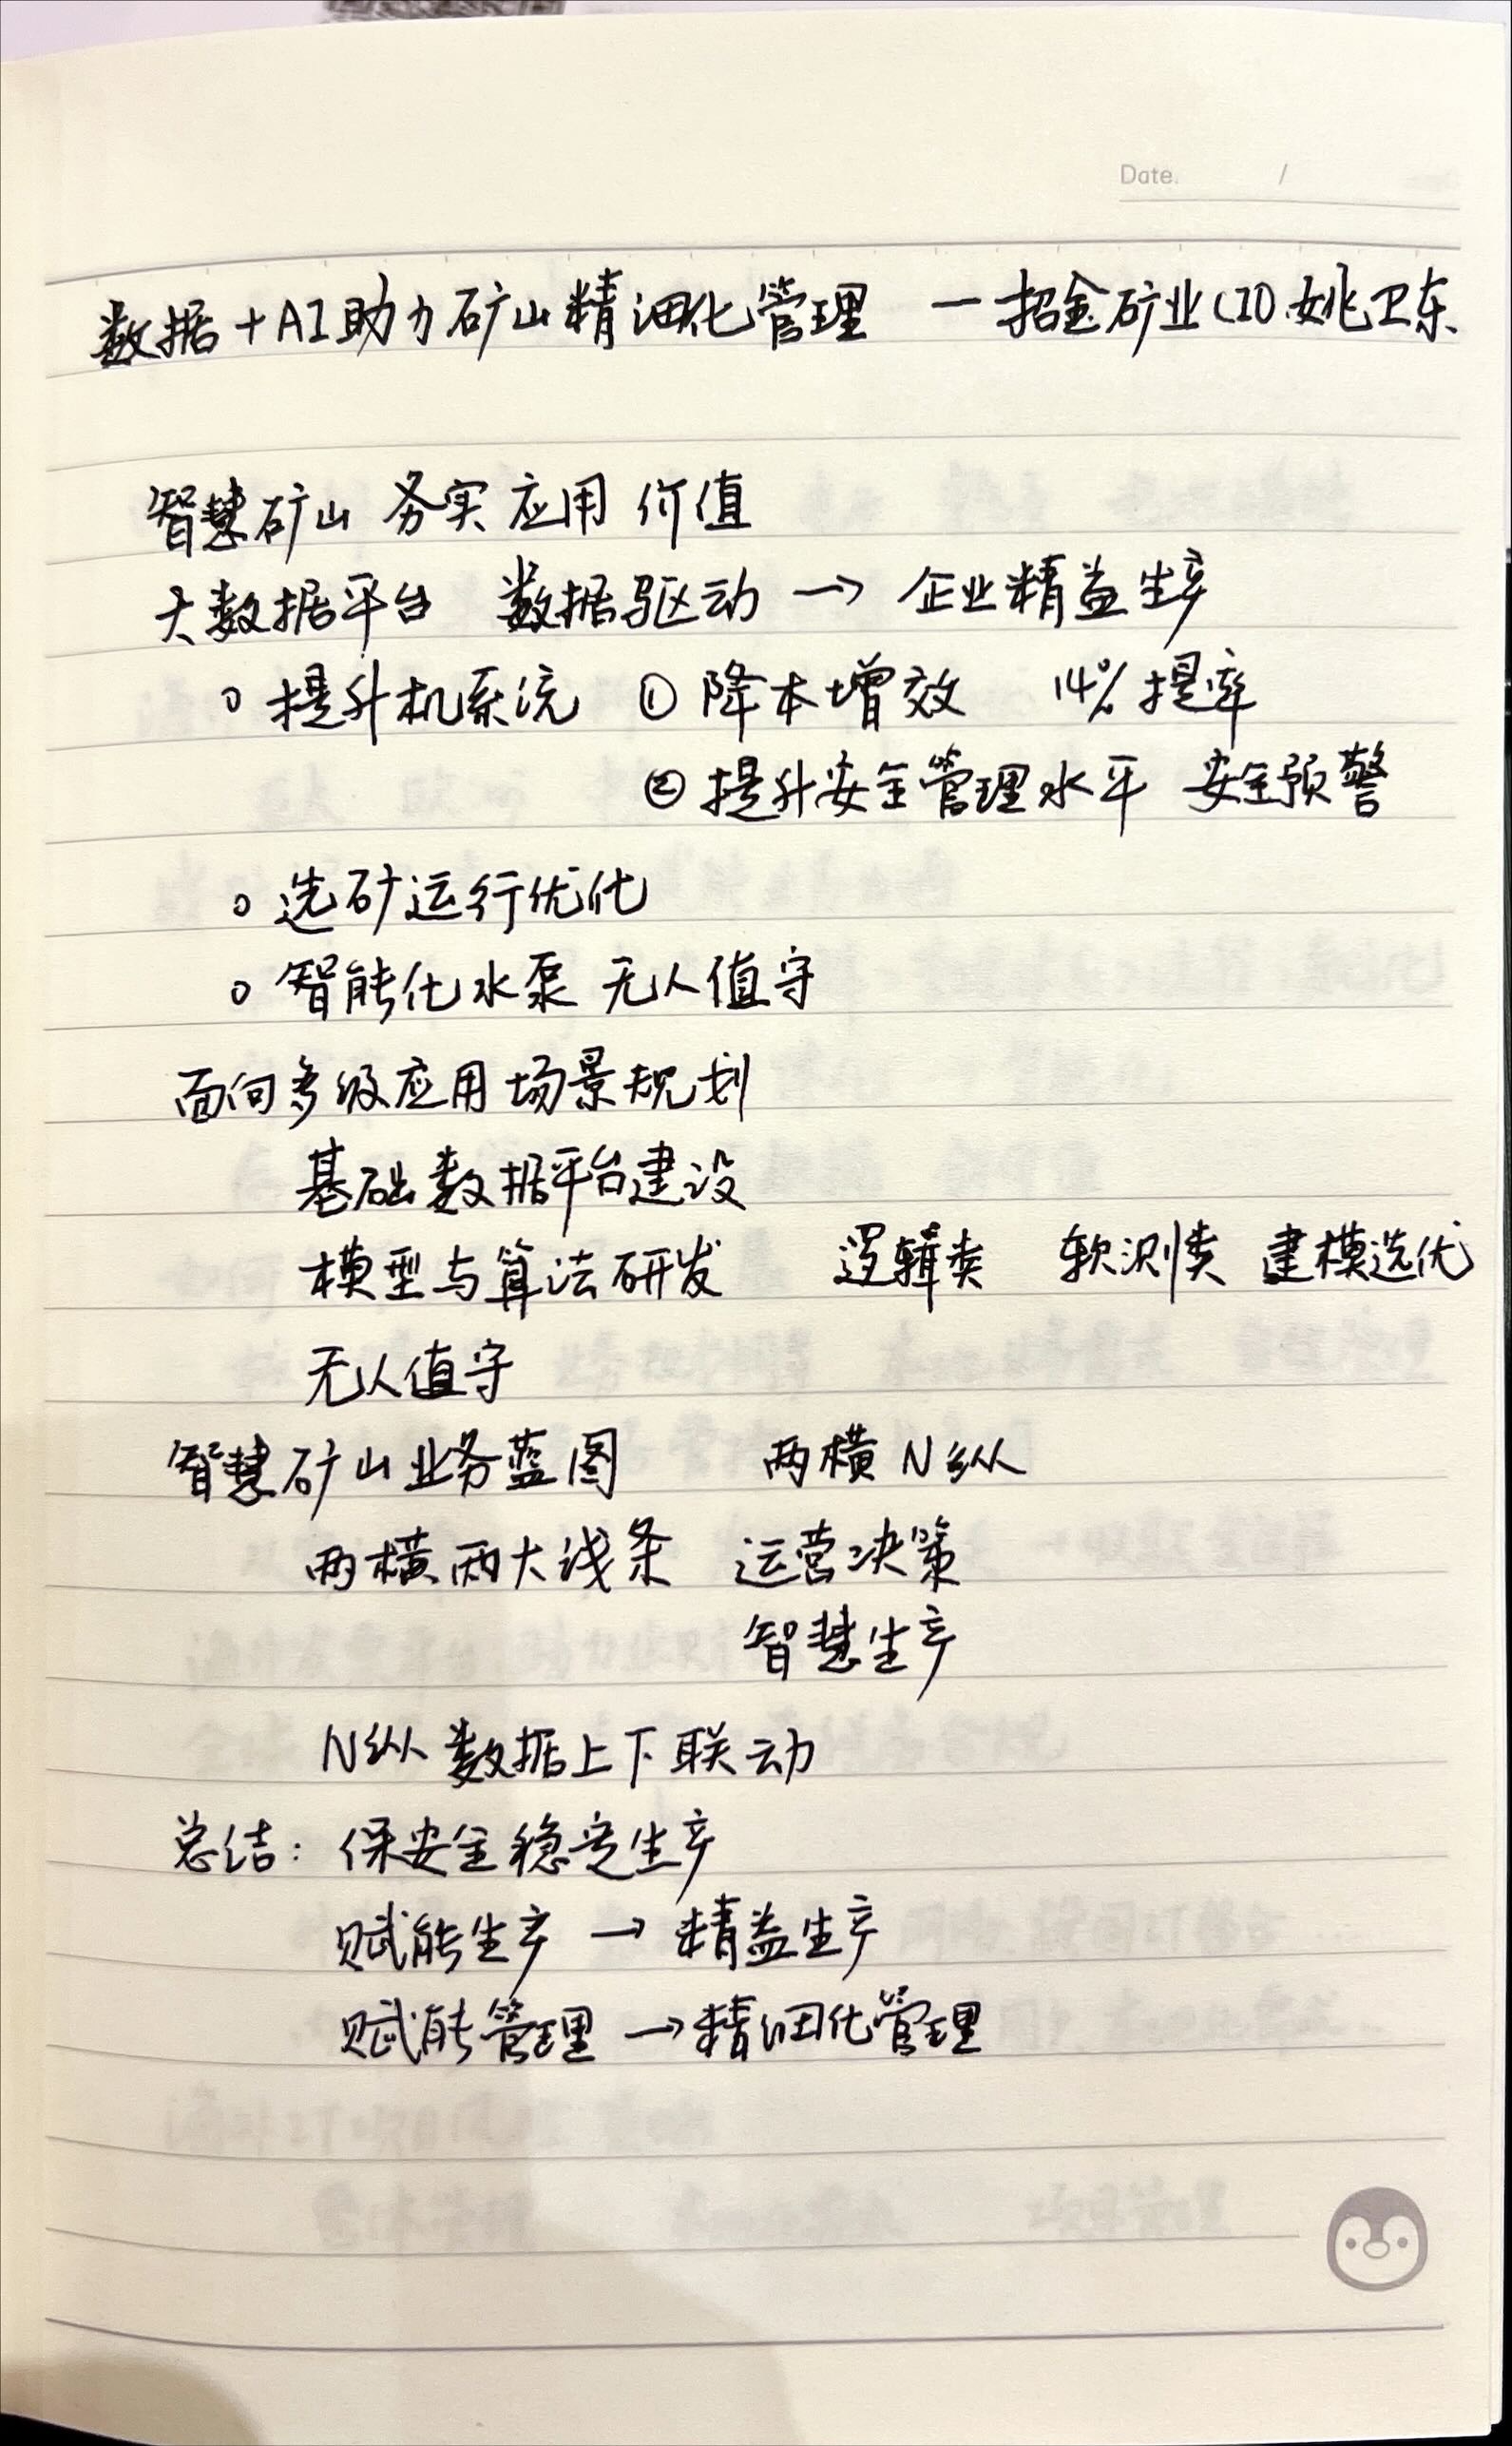 Date. /
数据+AI助力矿山精细化管理 —招金矿业CIO 姚卫东
智慧矿山 务实 应用 价值
大数据平台 数据驱动 → 企业精益生产
○ 提升机系统 ① 降本增效 14% 提率
② 提升安全管理水平 安全预警
○ 选矿运行优化
○ 智能化水泵 无人值守
面向多级应用场景规划
基础数据平台建设
模型与算法研发 逻辑类 软测类 建模选优
无人值守
智慧矿山业务蓝图 两横N纵
两横 两大线条 运营决策
智慧生产
N纵 数据上下联动
总结: 保安全稳定生产
赋能生产 → 精益生产
赋能管理 → 精细化管理